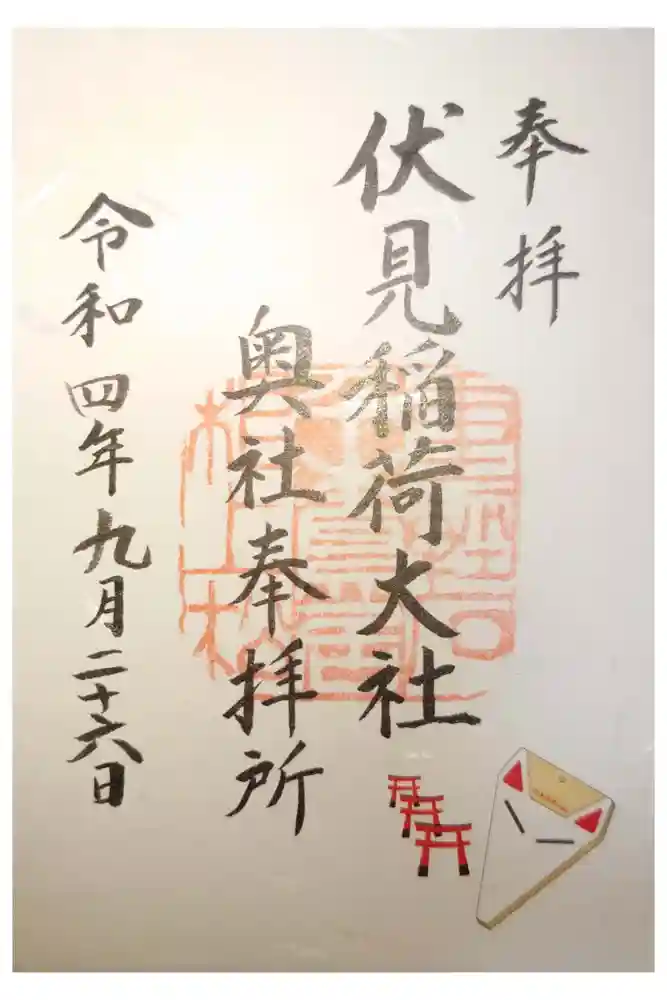 奉拝
伏見稲荷大社
奥社奉拝所
令和四年九月二十六日